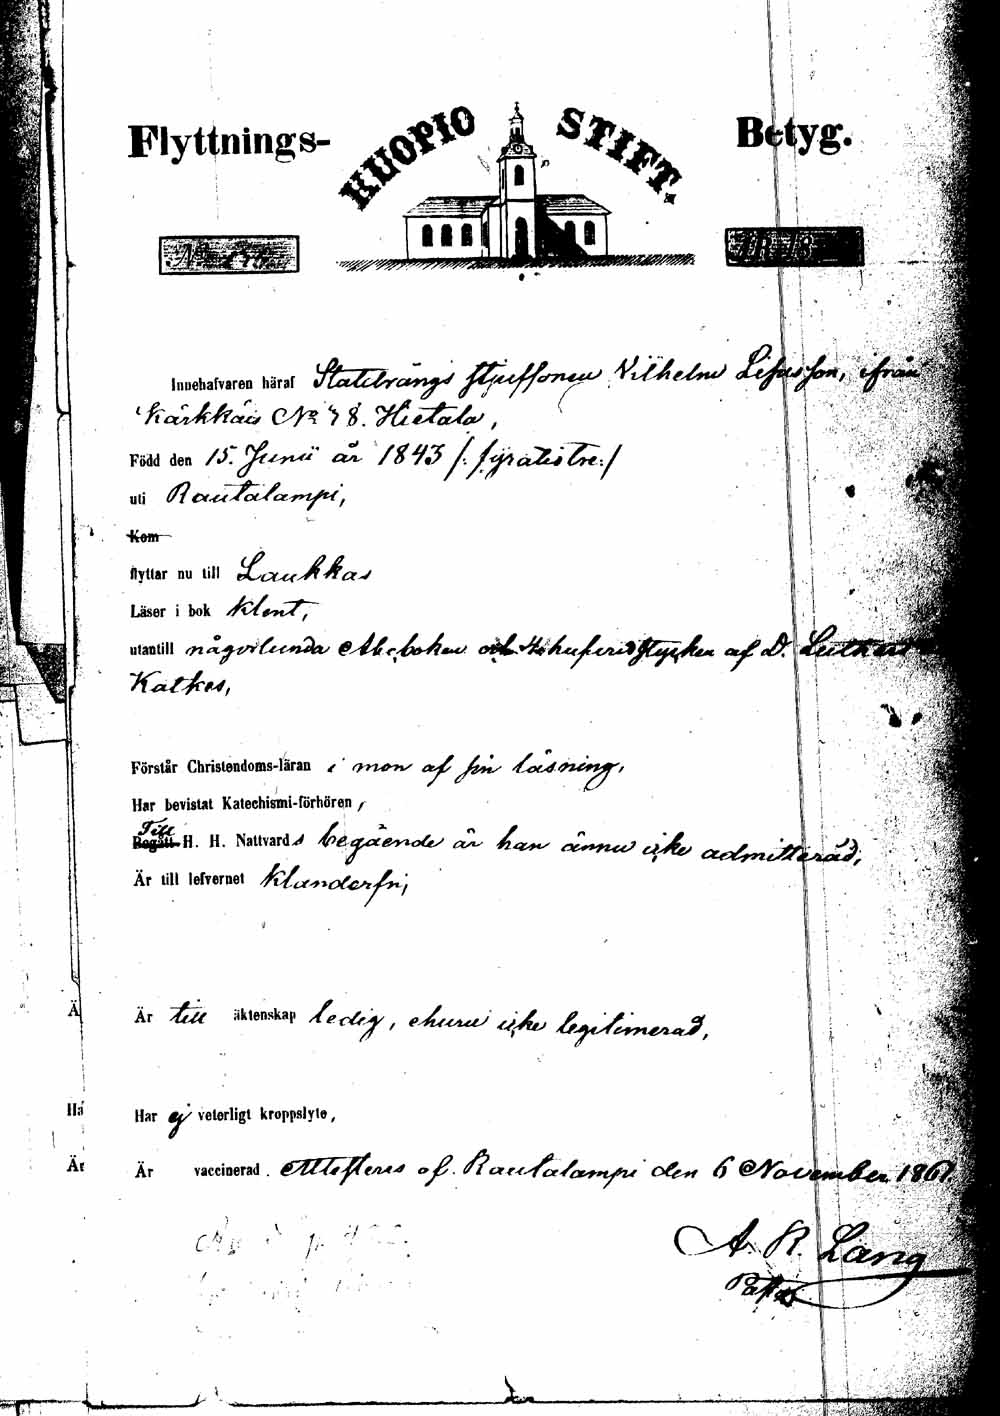 Flyttnings- KUOPIO STIFT. Betyg.
N:
Innehafvaren häraf Statdrängs styfsonen Vilhelm ifrån
Kärkkäis No 48. Hietala,
Född den 15. Junii år 1843 /: fyratiotre :/
uti Rautalampi,
Kom
flyttar nu till Laukkas
Läser i bok klent,
utantill någorlunda Abcboken och af D. Luthers
Katkes,
Förstår Christendoms-läran i mon af sin läsning,
Har bevistat Katechismi-förhören,
Till
Begått H. H. Nattvards begående är han ännu icke admitterad,
Är till lefvernet klanderfri,
Ä
Är till äktenskap ledig, ehuru icke legitimerad,
Ha
Har ej veterligt kroppslyte,
Är
Är vaccinerad. Attesteras af Rautalampi den 6 November 1861.
A. R. Lang
Pastor